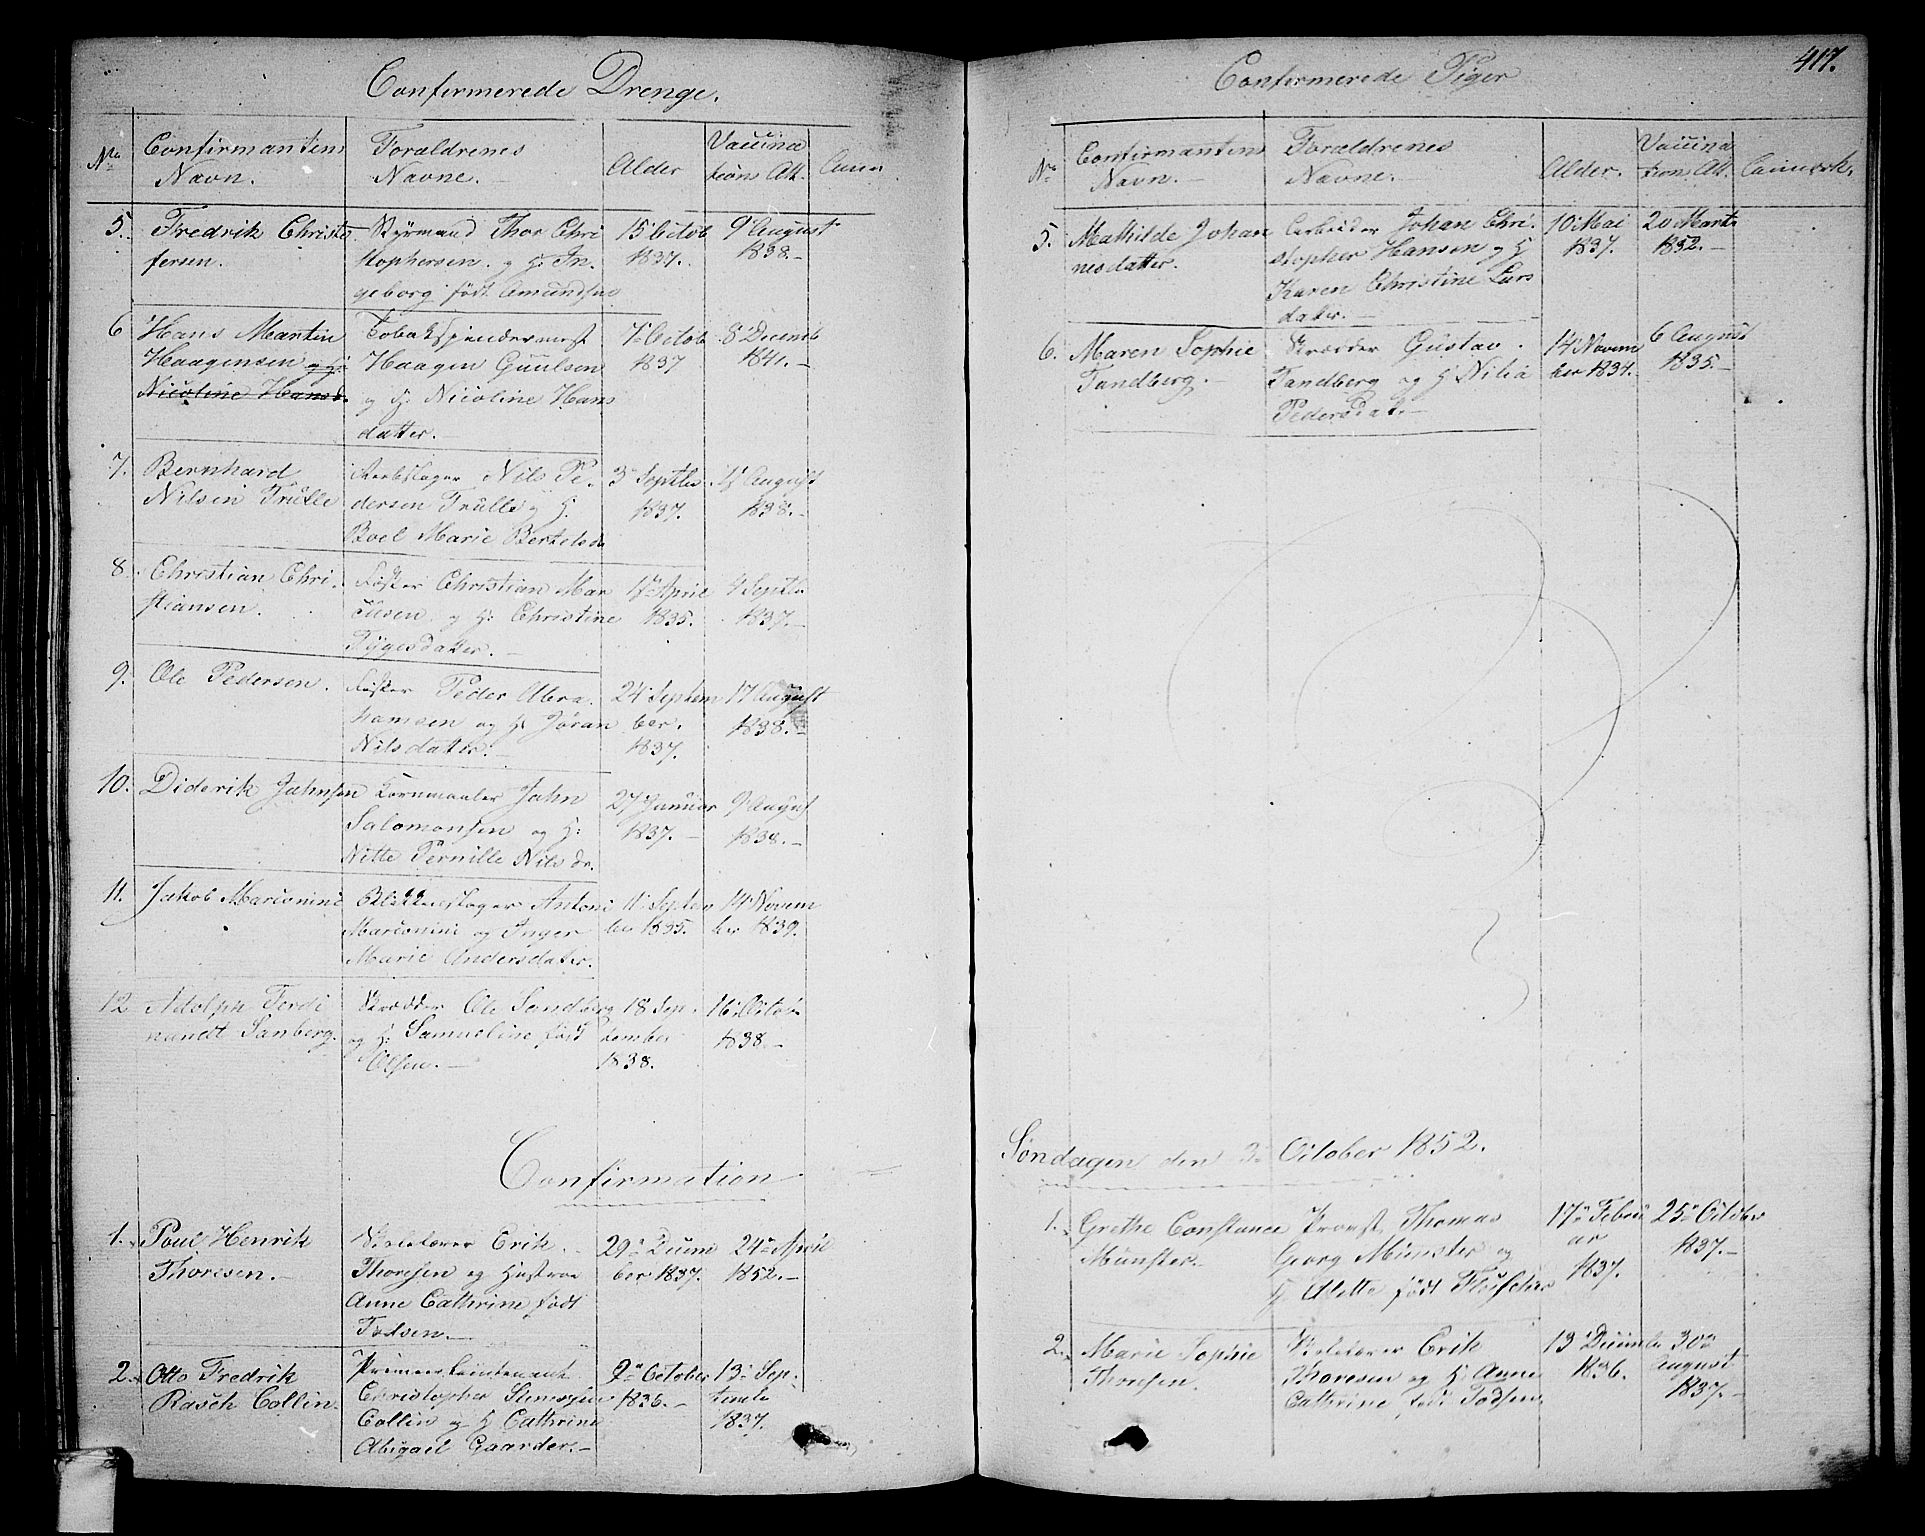 Confirmerede Drenge.
No
Confirmantens
Navn.
Forældrenes
Navne.
Alder
Vaccina
tions Att.
5.
Fredrik Christo
fersen.
Styrmand Thor Chri
stophersen. og H: In
geborg født Amundsen
15 Octob
1837.
9 August
1838.-
6
Hans Martin
Haagensen og H:
Nicoline Hansd.
Tobakspindermest
Haagen Guulsen
og H: Nicoline Hans
datter.-
7 Octob
1837
8 Decemb
1841.-
7.
Bernhard
Nilsen Trulle
Nils Pe-
dersen Trulle og H.
Boel Marie Bertelsd.
3 Septbr
1837.
August
1838.-
8.
Christian Chri-
stiansen.
Fisker Christian Mar
cusen og H: Christine
Tygesdatter.-
1 April
1835.
4 Septb
1837.-
9.
Ole Pedersen.
Fisker Peder Abra-
hamsen og H: Jøran
Nilsdatter.
24 Septem
ber.
1837.
17 August
1838.-
10.
Diderik Jahnsen
Kornmaaler Jahn
Salomonsen og H:
Nitte Pernille Nilsdr.
27 Januar
1837.-
9 August
1838.-
11.
Jakob Marconini
Blikkenslager Antoni
Marconini og Inger
Marie Andersdatter.
11 Septem
ber 1835.
14 Novem
ber 1839.
12
Adolph Ferdi
nandt Sanberg.
Skrædder Ole Sandberg
og H: Samueline født
Olsen.-
18 Sep-
tember
1838.
16 Octob
1838.-
Confirmation
1.
Poul Henrik
Thoresen.-
Skolelærer Erik
Thoresen og Hustrue
Anne Cathrine født
Todsen.-
29 Decem
ber 1837.
24 April
1852.-
2.
Otto Fredrik
Rasch Collin.
Premierlieutenant
Christopher
Collin og H Cathrine
Abigail Gaarder.-
2 October
1836.-
13 Sep-
tembr
1837.
417.
Confirmerede Piger
No
Confirmantens
Navn.-
Forældrenes
Navne.-
Alder.
Vaccina
tion Att.
Anmærk.
5.
Mathilde Johan
nesdatter.
Arbeider Johan Chri-
stopher Hansen og H
Karen Christine Lars
datter.-
10 Mai
1837.
20 Marts
1852.-
6.
Maren Sophie
Tandberg.-
Skrædder Gustav
Tandberg og H Nilia
Pedersdat.-
14 Novem
ber 1837.
6 August
1835.-
Søndagen den 3 October 1852.
1.
Grethe Constance
Münster.-
Provst Thomas
Georg Münster og
H Alette født
17 Febru
ar
1837.
25 October
1837.-
2.
Marie Sophie
Thoresen.
Skolelærer Erik
Thoresen og H. Anne
Cathrine født Todsen.
13 Decemb
1836.
30
August
1837.-